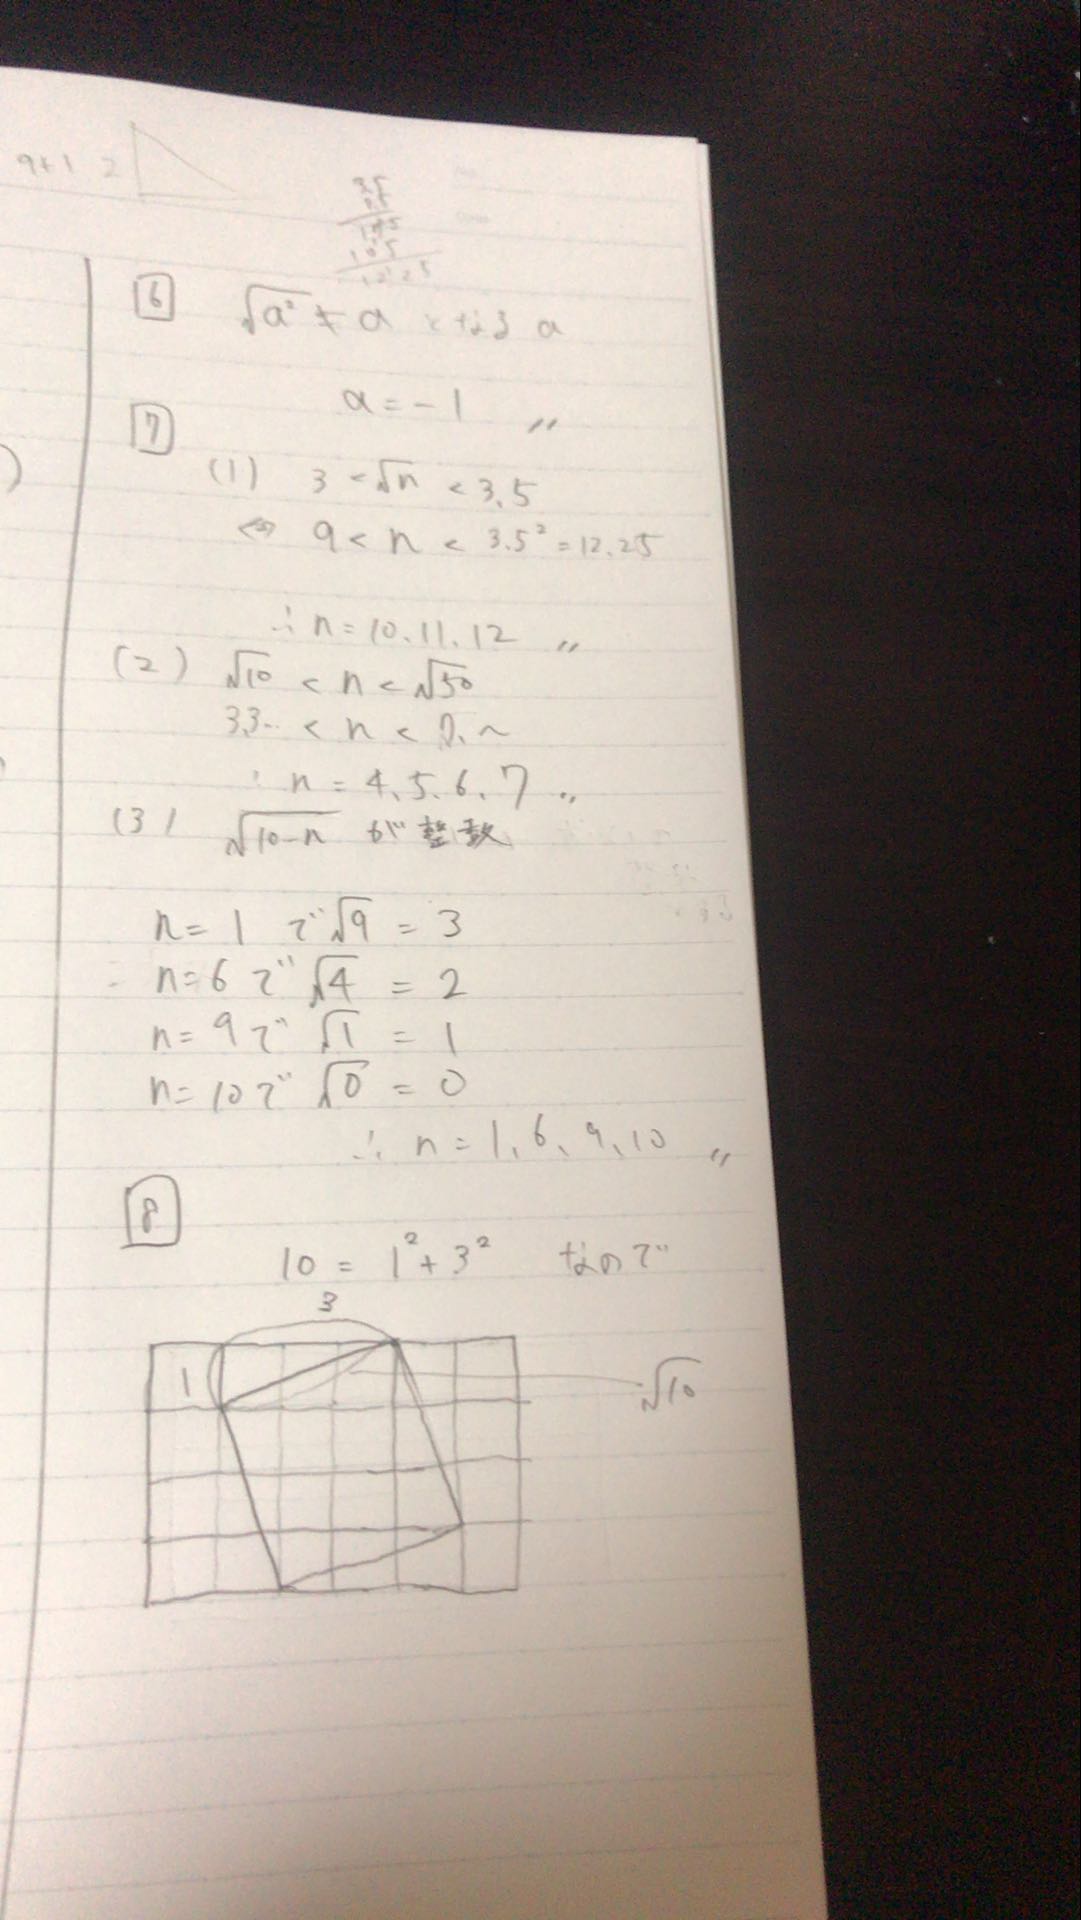 9+1 2
35
105
1225
6 √a² ≠ a となる a
a = -1 〃
7
(1) 3 < √n < 3.5
⇔ 9 < n < 3.5² = 12.25
∴ n = 10, 11, 12 〃
(2) √10 < n < √50
33.. < n < 7.~
∴ n = 4, 5, 6, 7 〃
(3) √10-n が整数
n = 1 で √9 = 3
n = 6 で √4 = 2
n = 9 で √1 = 1
n = 10 で √0 = 0
∴ n = 1, 6, 9, 10 〃
8
10 = 1² + 3² なので
3
1
√10